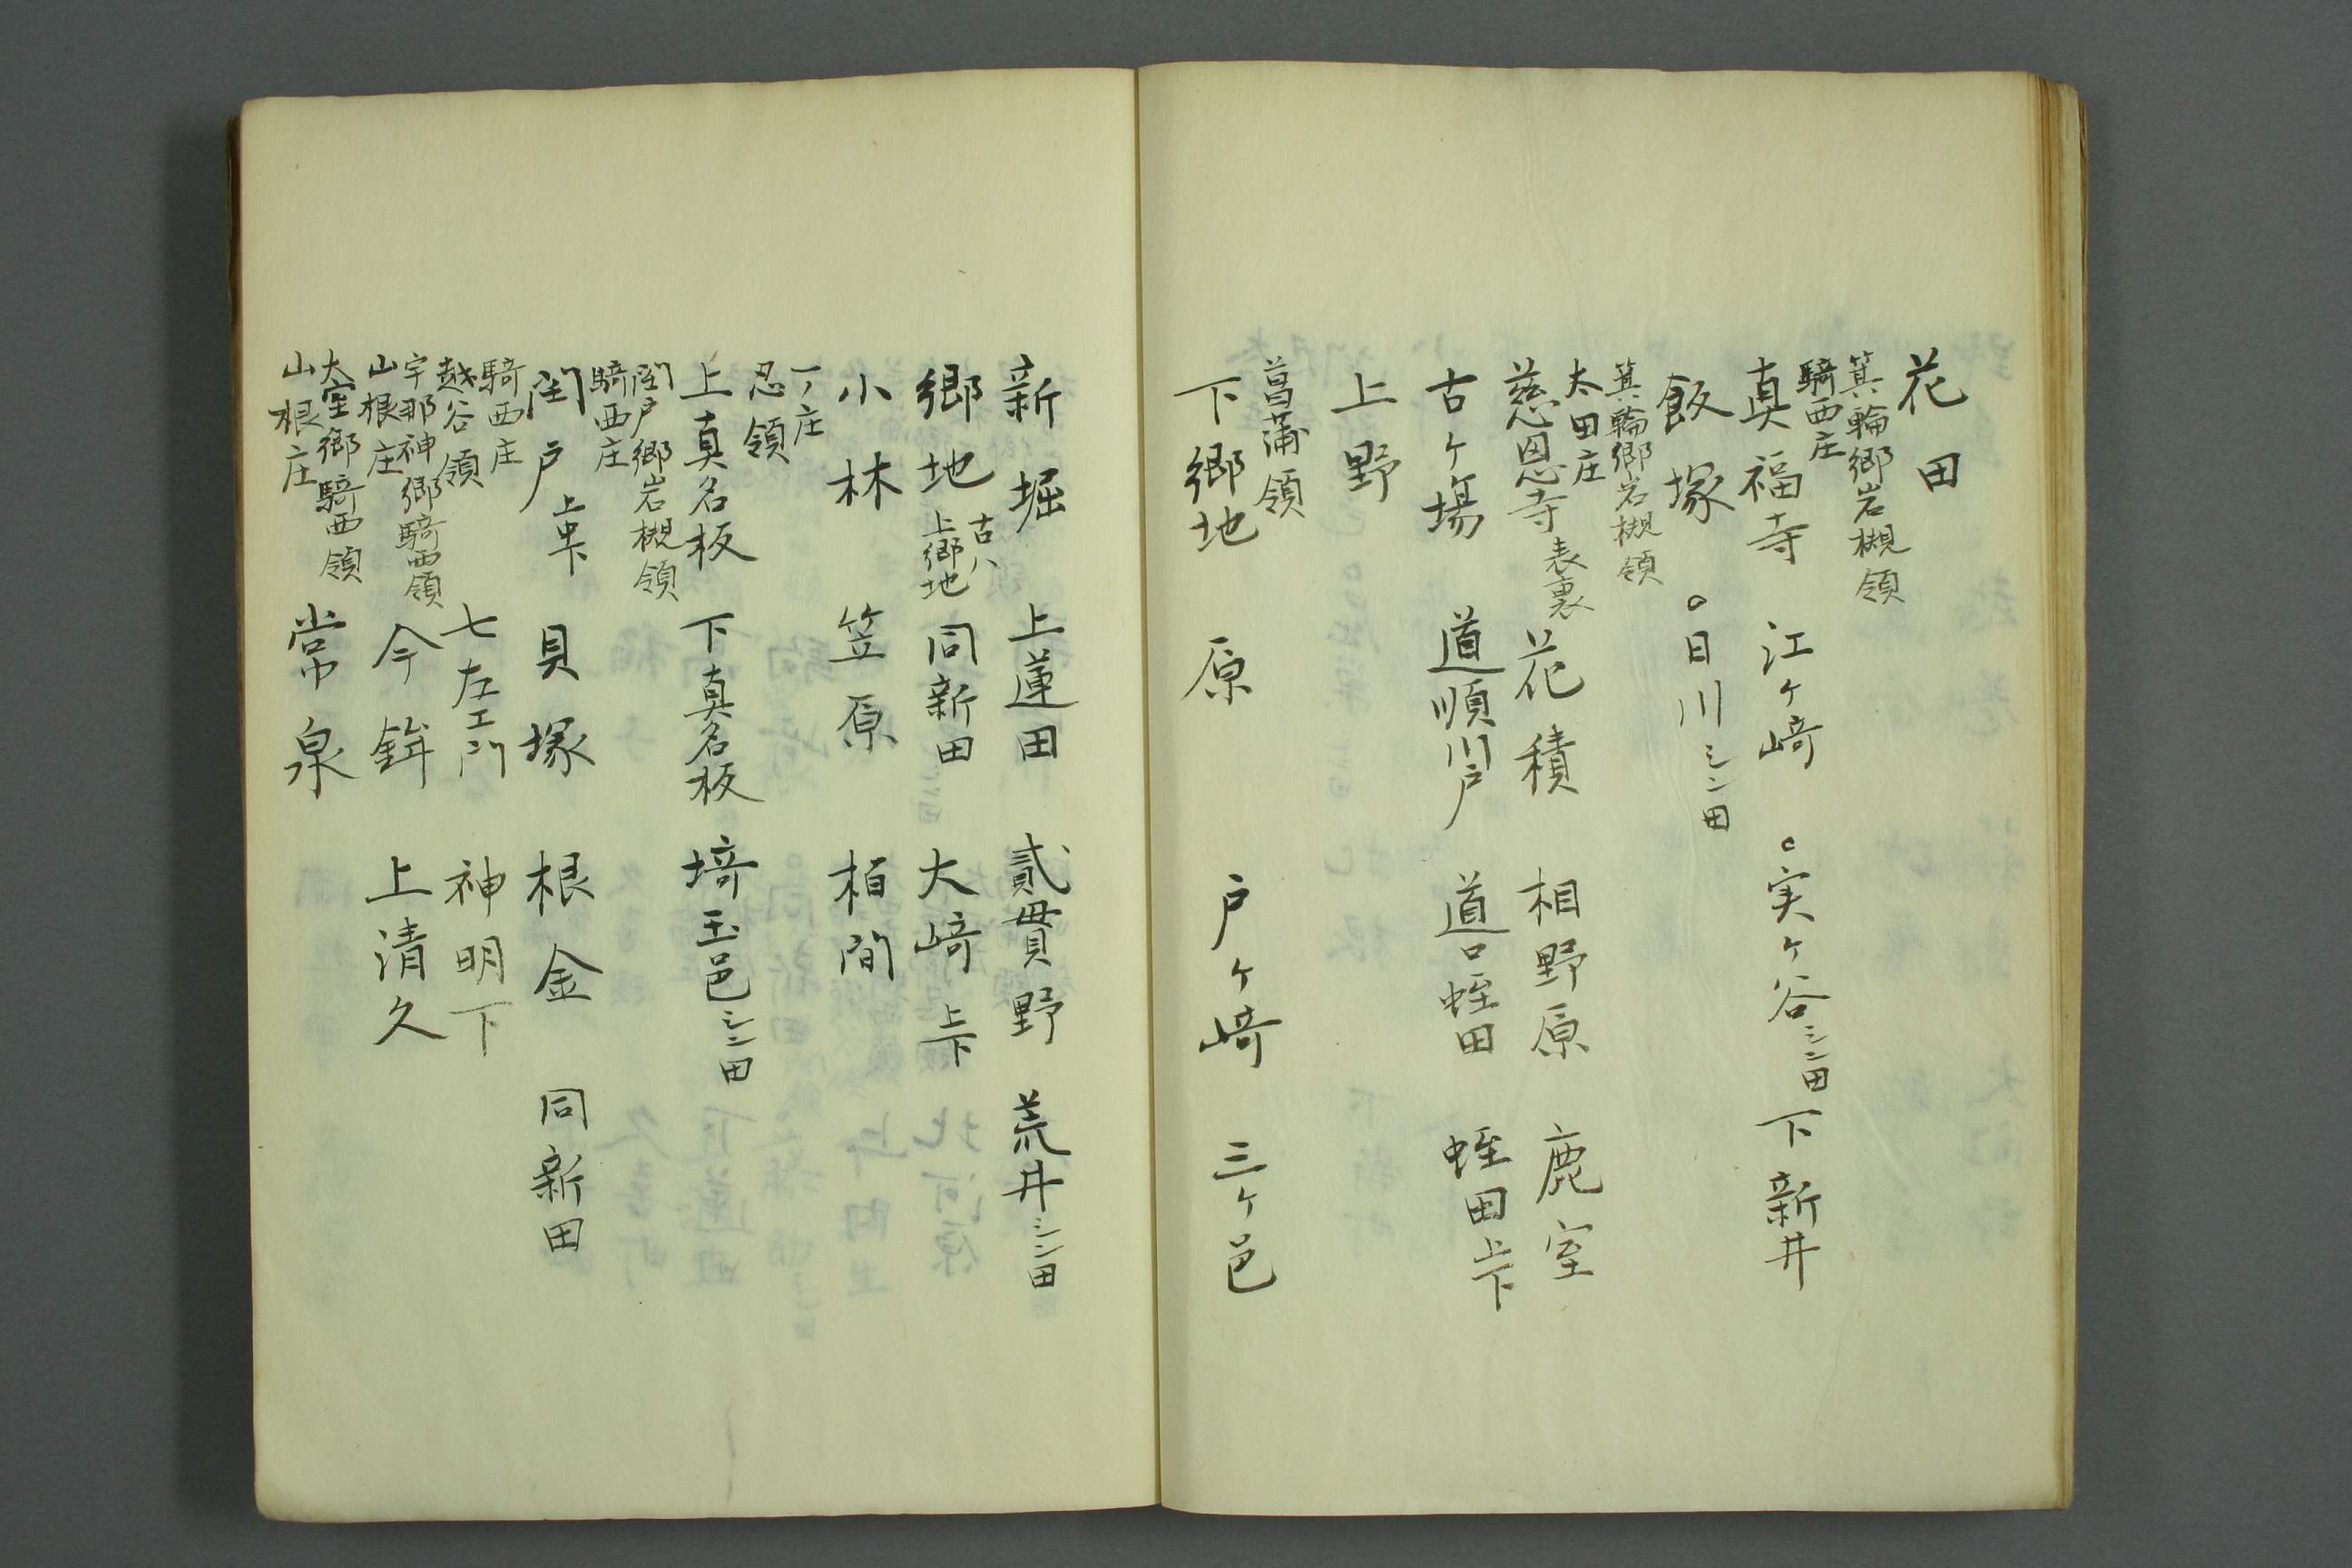 花田
箕輪郷岩槻領
騎西庄
真福寺 江ケ﨑 ○実ケ谷シン田 下新井
飯塚 ○日川シン田
箕輪郷岩槻領
太田庄
慈恩寺表裏 花積 相野原 鹿室
古ケ場 道順川戸 道口蛭田 蛭田上下
上野
菖蒲領
下郷地 原 戸ケ﨑 三ケ邑
新堀 上蓮田 貳貫野 荒井シン田
郷地 古ハ上郷地 同新田 大﨑上下
小林 笠原 栢間
一ノ庄
忍領
上真名板 下真名板 埼玉邑シン田
閏戸郷岩槻領
騎西庄
閏戸上中下 貝塚 根金 同新田
騎西庄
越谷領 七左エ門 神明下
宇那神郷騎西領
山根庄 今鉾 上清久
大室郷騎西領
山根庄 常泉